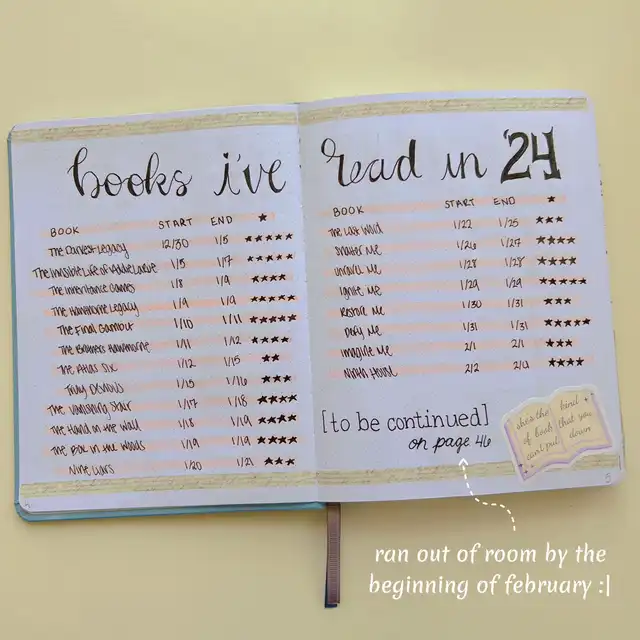 books i've
BOOK START END ★
The Darkest Legacy 12/30 1/5 ★★★★★
The Invisible Life of Addie Larue 1/5 1/7 ★★★★★
The Inheritance Games 1/8 1/9 ★★★★
The Hawthorne Legacy 1/9 1/9 ★★★★
The Final Gambit 1/10 1/11 ★★★★★
The Brothers Hawthorne 1/11 1/12 ★★★★
The Atlas Six 1/12 1/15 ★★
Truly Devious 1/15 1/16 ★★★
The Vanishing Stair 1/17 1/18 ★★★★
The Hand on the Wall 1/18 1/19 ★★★★
The Box in the Woods 1/19 1/19 ★★★★
Nine Liars 1/20 1/21 ★★★
read in '24
BOOK START END ★
The Last Wild 1/22 1/25 ★★★
Shatter Me 1/26 1/27 ★★★★
Unravel Me 1/28 1/28 ★★★★
Ignite Me 1/29 1/29 ★★★★★
Restore Me 1/30 1/31 ★★★
Defy Me 1/31 1/31 ★★★★★
Imagine Me 2/1 2/1 ★★★
Ninth House 2/2 ★★★★
[to be continued]
on page 46
she's the kind
of book that you
can't put down
5
ran out of room by the
beginning of february :|